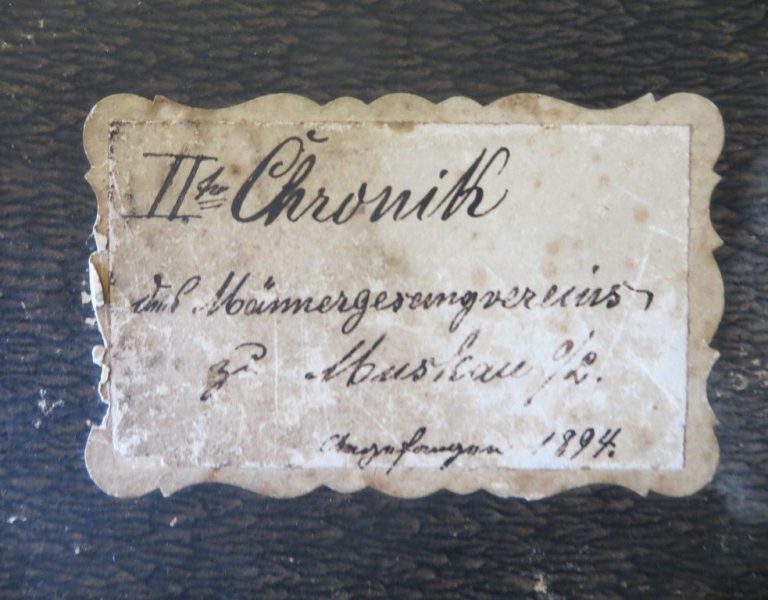 IIte Chronik
des Männergesangvereins
zu Muskau O/L.
Angefangen 1894.